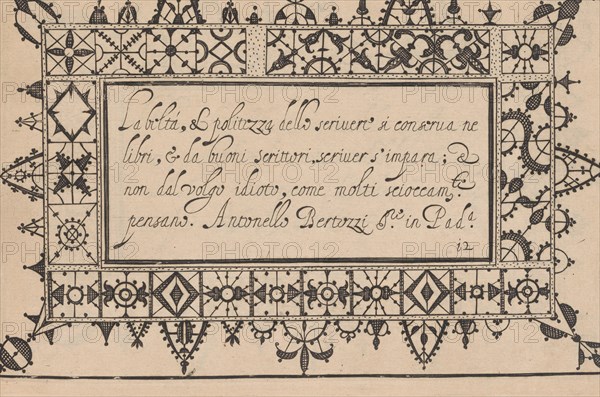 La beltà, & politezza dello scrivere si conserva ne
libri, & da buoni scrittori scriver s'impara; &
non dal volgo idioto, come molti scioccam.te
pensano. Antonello Bertozzi S.re in Pad.a
12